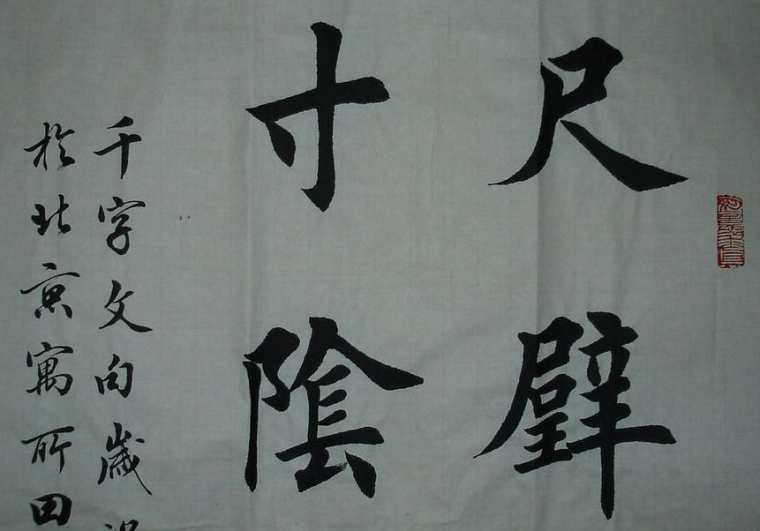 尺璧
寸陰
千字文句歲
於北京寓所田